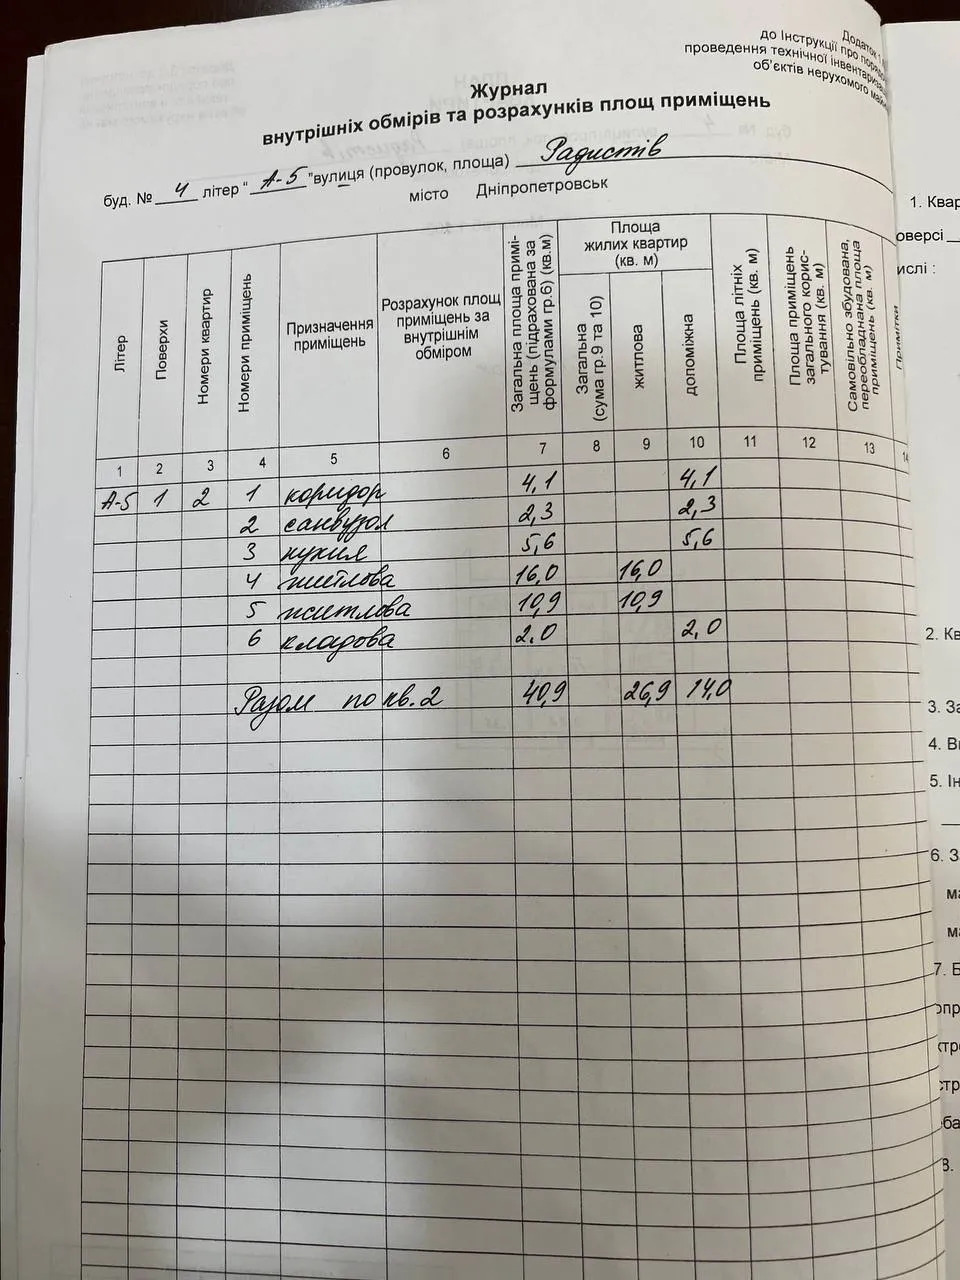 Додаток
до Інструкції про порядок
проведення технічної інвентариза
об'єктів нерухомого майн
Журнал
внутрішніх обмірів та розрахунків площ приміщень
буд. № 4 літер “ А-5 ”вулиця (провулок, площа) Радистів
місто Дніпропетровськ
Літер
Поверхи
Номери квартир
Номери приміщень
Призначення приміщень
Розрахунок площ приміщень за внутрішнім обміром
Загальна площа приміщень (підрахована за формулами гр.6) (кв.м)
Площа жилих квартир (кв. м)
Загальна (сума гр.9 та 10)
житлова
допоміжна
Площа літніх приміщень (кв. м)
Площа приміщень загального користування (кв. м)
Самовільно збудована, переобладнана площа приміщень (кв. м)
Примітки
1 2 3 4 5 6 7 8 9 10 11 12 13 14
А-5 1 2 1 коридор 4,1 4,1
2 санвузол 2,3 2,3
3 кухня 5,6 5,6
4 житлова 16,0 16,0
5 житлова 10,9 10,9
6 кладова 2,0 2,0
Разом по кв. 2 40,9 26,9 14,0
1. Квар
оверсі
ислі :
2. Кв
3. За
4. Ви
5. Ін
6. З
ма
ма
7. Б
опр
ктро
стр
еба
8.